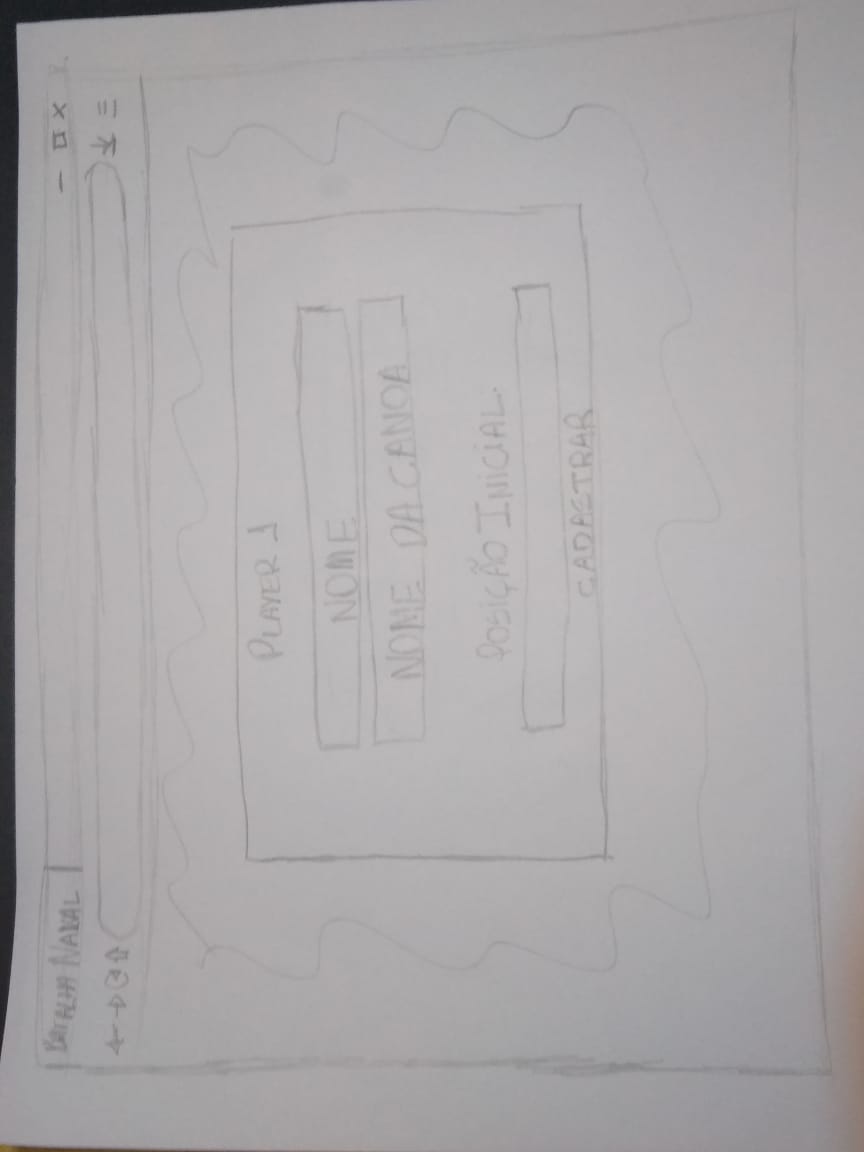 BATALHA NAVAL
PLAYER 1
NOME
NOME DA CANOA
POSIÇÃO INICIAL.
CADASTRAR